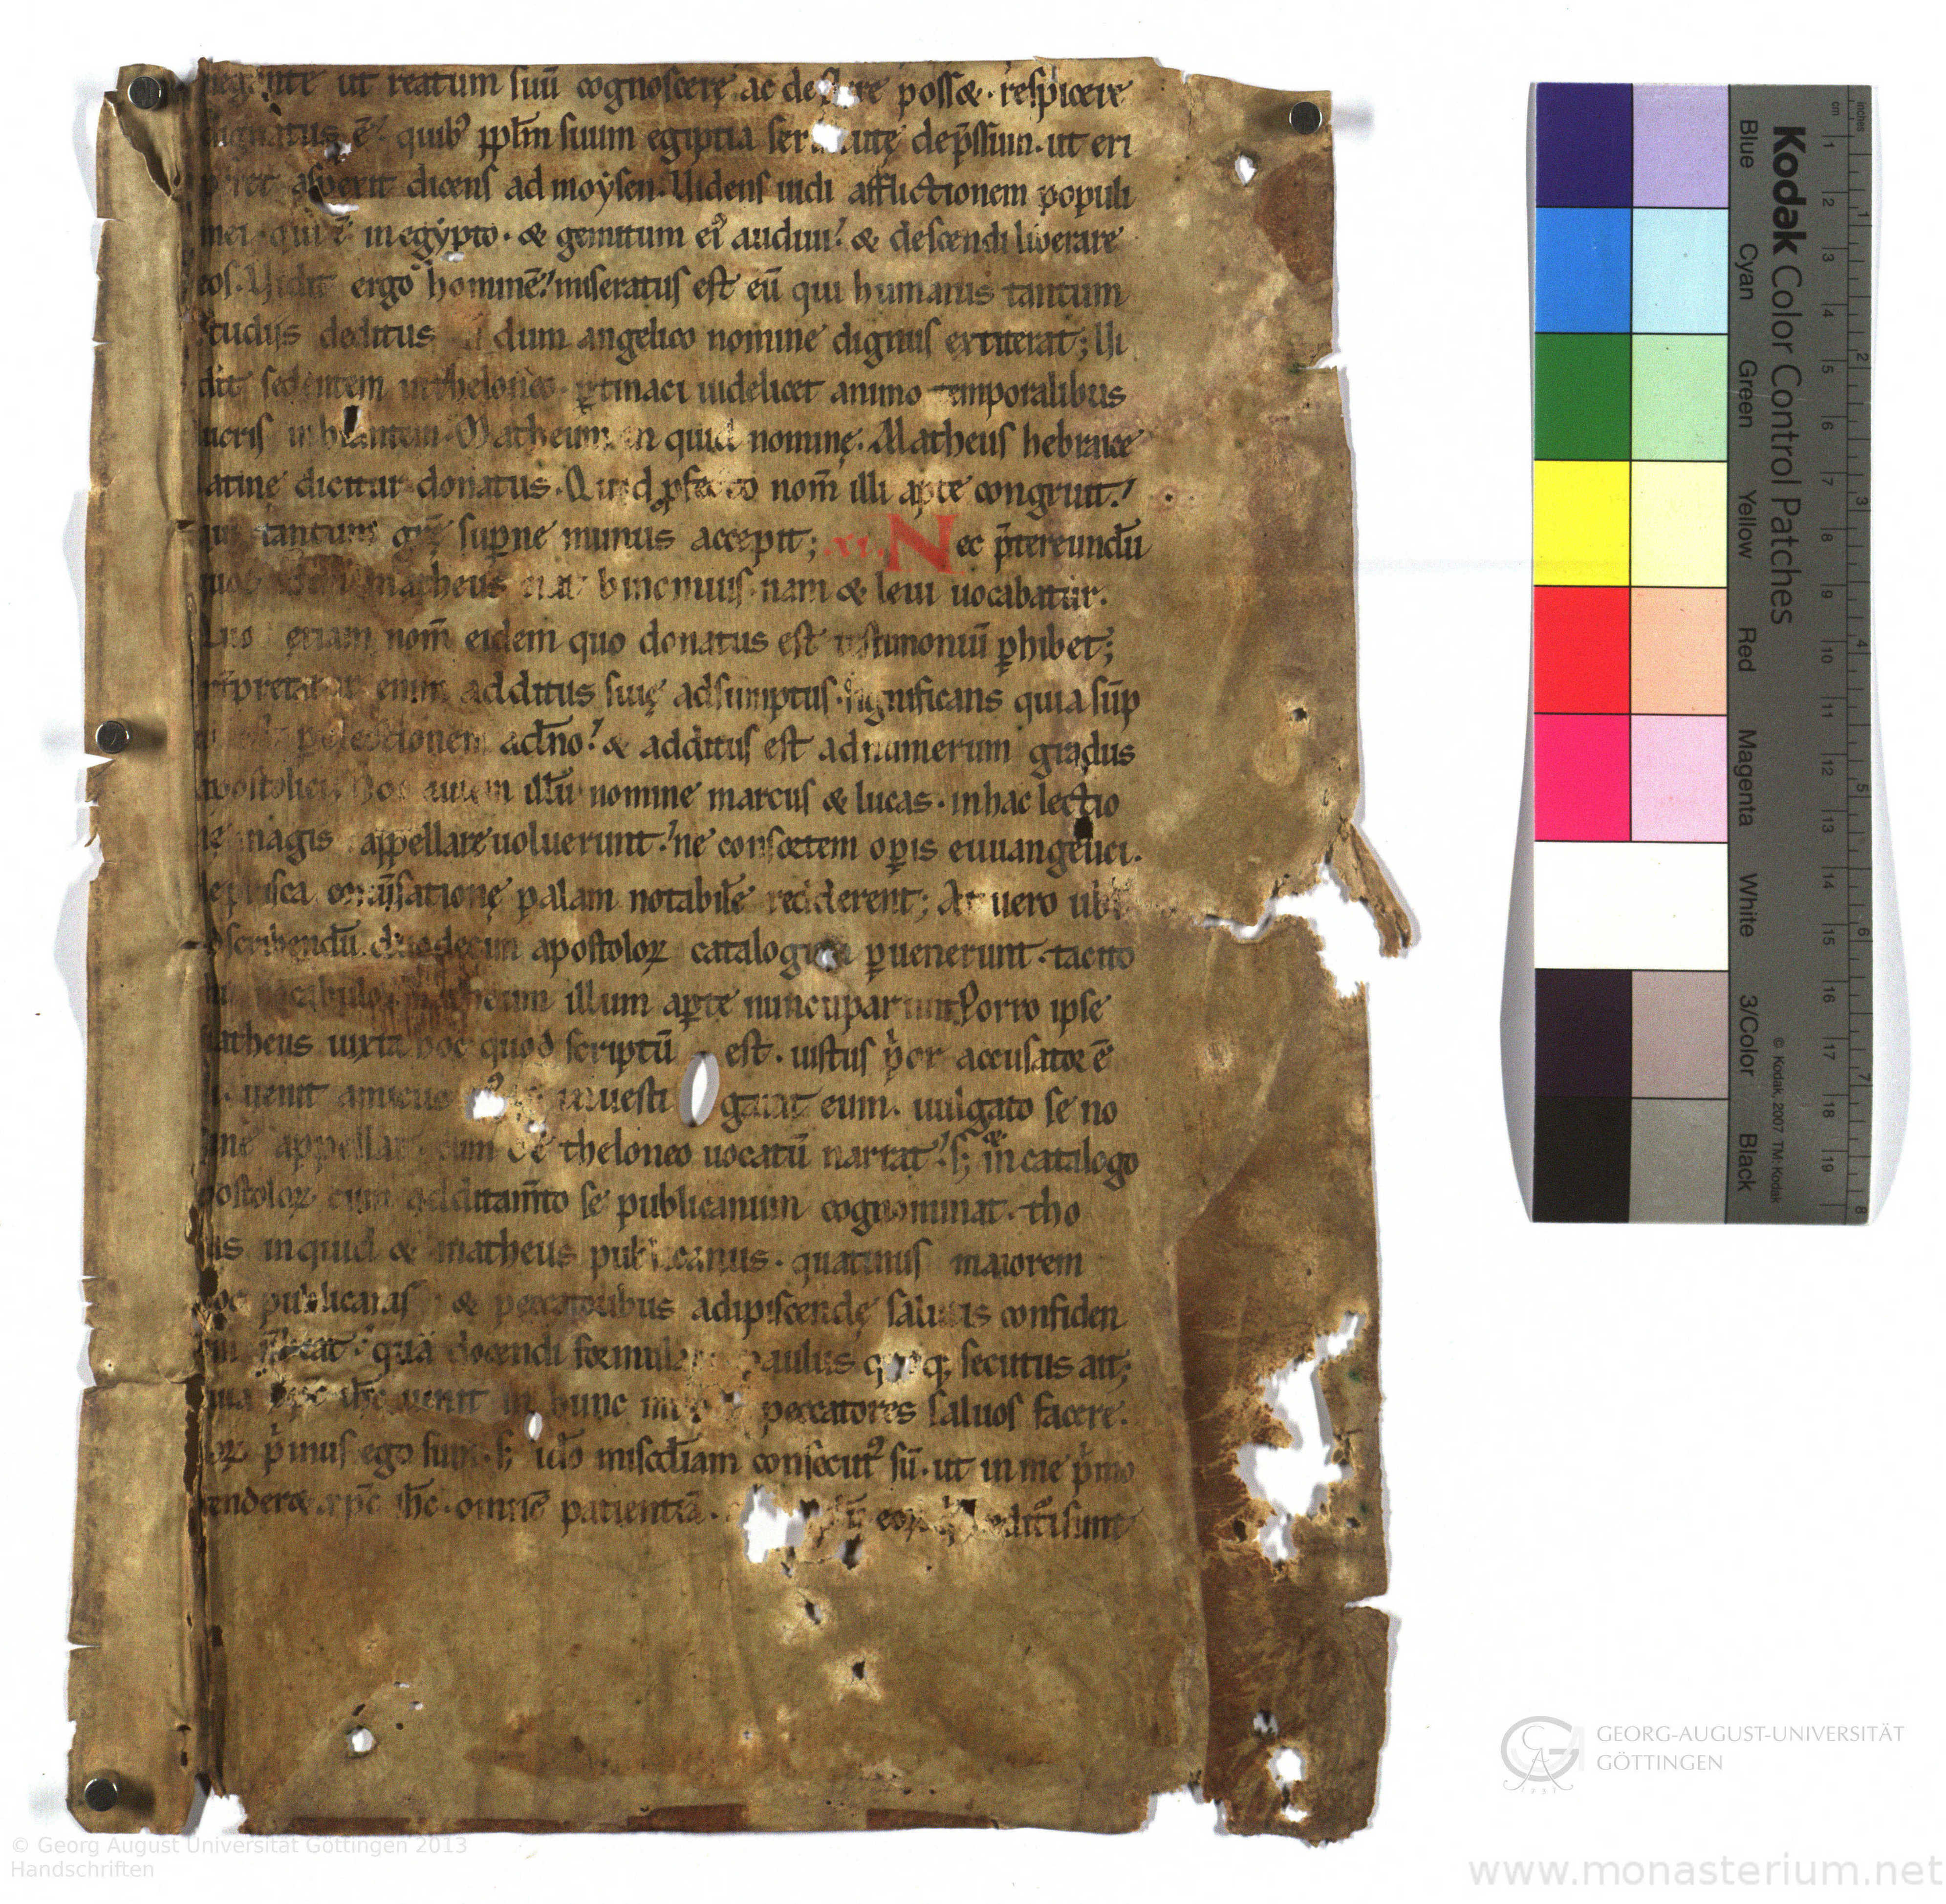 ut reatum suū cognoscere ac deflere poss&. respicere
dignatus ē. quib᾽ pplm̄ suum egiptia ser utę dep̄ssum. ut eri
peret asperit dicens ad moysen. Uidens uidi afflictionem populi
mei. qui ē in egypto. & gemitum ei᾽ audiui. & descendi liberare
eos. Uidit ergo hominē. miseratus est eū qui humanis tantum
studiis deditus dum angelico nomine dignus extiterat; Ui
dit sedentem in theloneo. ꝑtinaci uidelicet animo temporalibus
lucris inhiantem. Matheum in quid nomine. Matheus hebraice
latine dicitur donatus. Quod ꝓfecto nom̄ illi apte congruit.
qui tantum grę̄ supne munus accepit; .xi. Nec p̄tereundū
matheus binomius. nam & leui uocabatur.
etiam nom̄ eidem quo donatus est testimoniū ꝑhibet;
enim additus siuę adsumptus. significans quia sūp
ꝑ electionem a dn̄o. & additus est ad numerum gradus
apostolici. autem illū nomine marcus & lucas. in hac lectio
ne magis appellare uoluerunt. ne consortem oꝑis euuangelici.
de prisca conuersationę palam notabile redderent; At uero ubi
scribendū duodecim apostoloꝝ catalogum ꝑuenerunt. tacito
uocabulo. illum aꝑte nuncuparunt. Porro ipse
matheus iuxta hoc quod scriptū est. iustus p̍or accusator ē
uenit amicus inuesti gauit eum. uulgato se no
mine appellat cum de theloneo uocatū narrat. s; in catalogo
apostoloꝝ cum additam̄to se publicanum cognominat. tho
mas inquid & matheus publicanus. quatinus maiorem
hoc publicanis & peccatoribus adipiscendę salutis confiden
quā docendi formulam paulus quoq; secutus ait;
quia xp̄c ih̄c uenit in hunc mundum peccatores saluos facere.
p̍mus ego sum. s; ido miscdiam consecut᾽ sū. ut in me p̍mo
ostender& xp̄c ih̄c. omnē patientiā. sunt
Kodak Color Control Patches
Blue Cyan Green Yellow Red Magenta White 3/Color Black
© Kodak, 2007 TM: Kodak
inches 1 2 3 4 5 6 7 8
cm 1 2 3 4 5 6 7 8 9 10 11 12 13 14 15 16 17 18 19
GEORG-AUGUST-UNIVERSITÄT
GÖTTINGEN
© Georg August Universität Göttingen 2013
Handschriften
www.monasterium.net